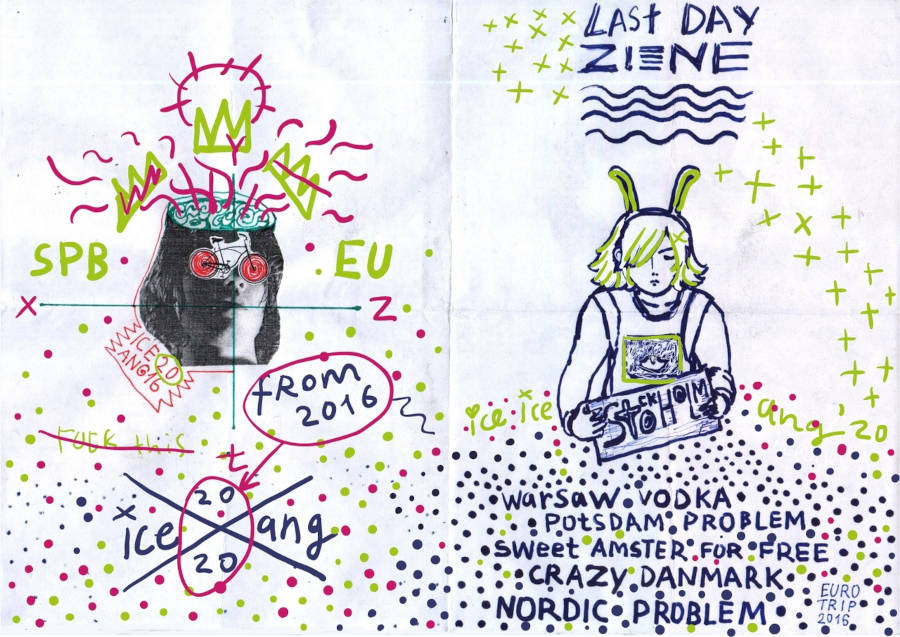 SPB
EU
X
Z
ICE
20
ANG16
FROM
2016
FUCK this
t
20
ice
ang
20
LAST DAY
ZIENE
STOCKHOLM
ice ice
ang'20
warsaw VODKA
POTSDAM PROBLEM
SWeet AMSTER FOR FREE
CRAZY DANMARK
NORDIC PROBLEM
EURO
TRIP
2016